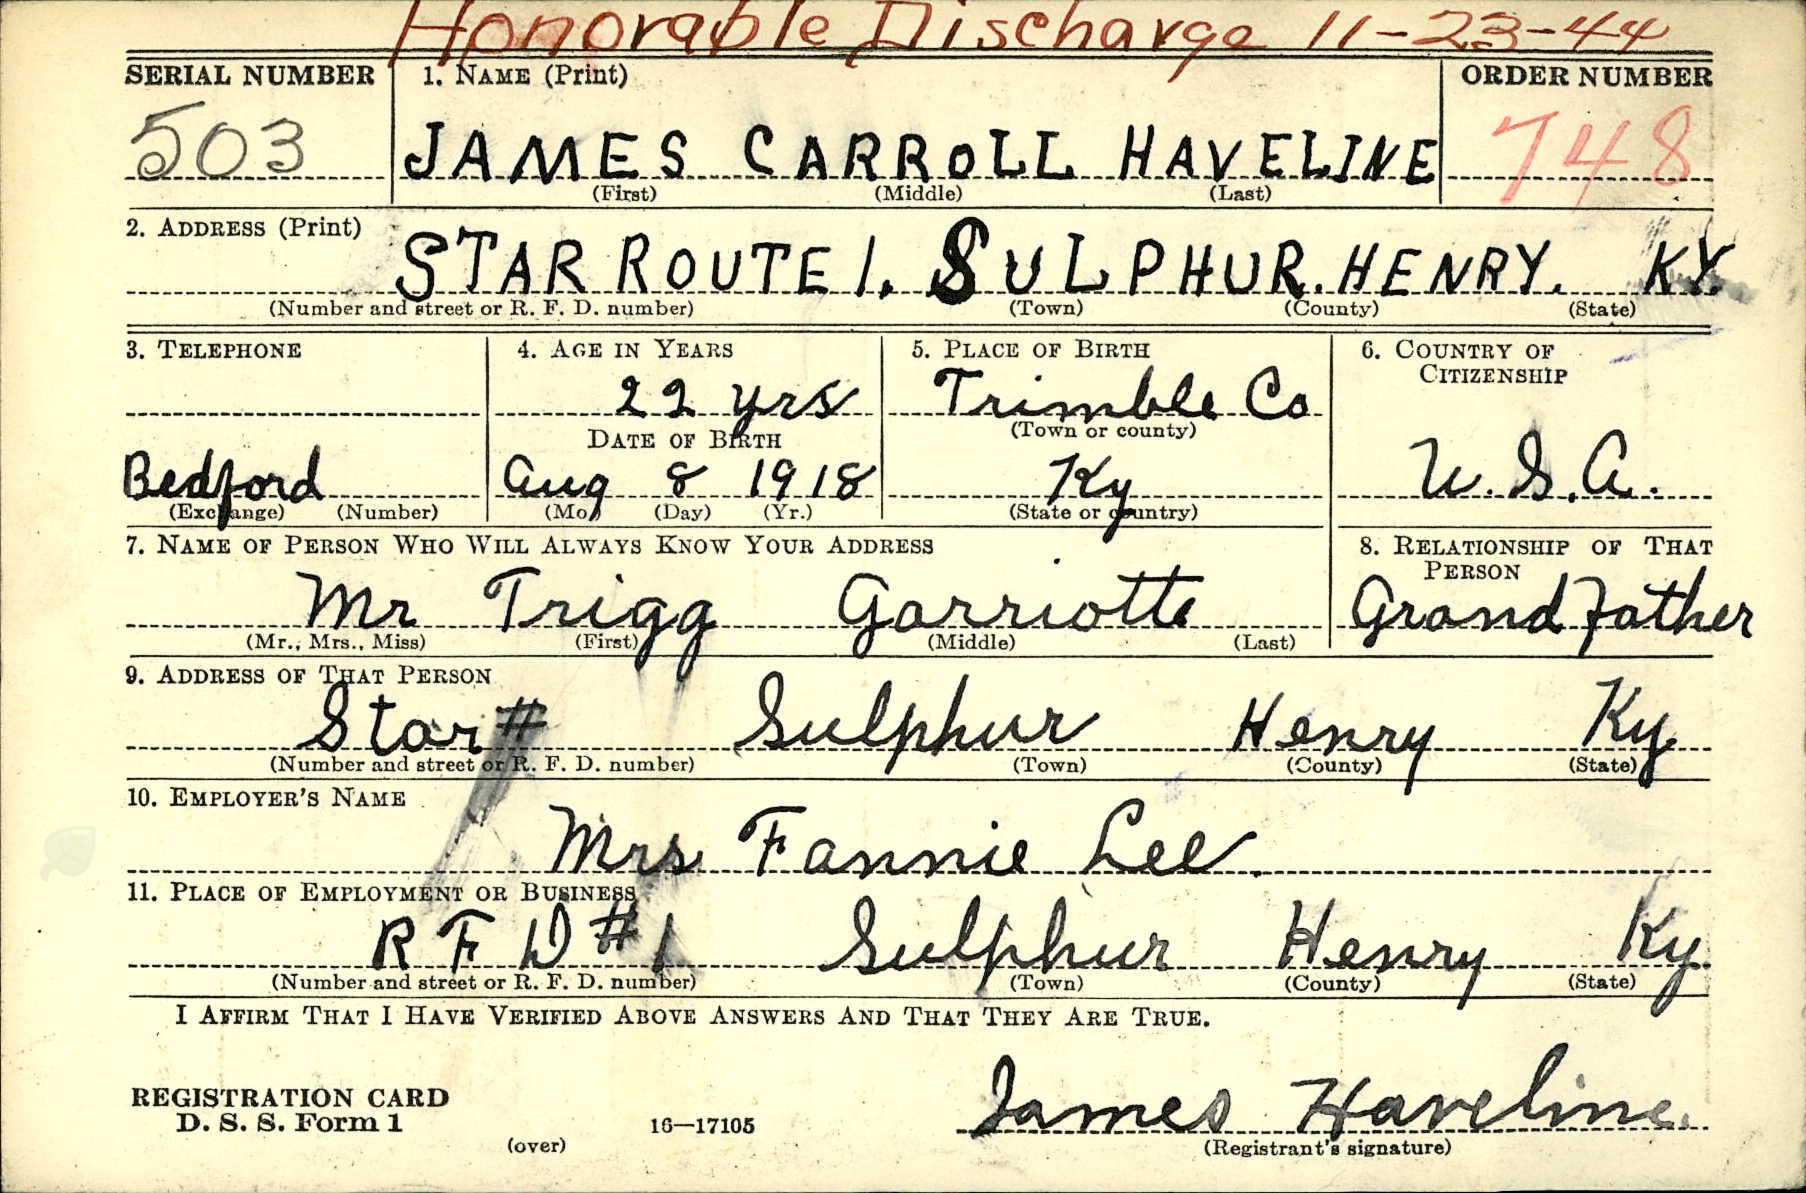 Honorable Discharge 11-23-44
SERIAL NUMBER 1. NAME (Print) ORDER NUMBER
503 JAMES CARROLL HAVELINE 748
(First) (Middle) (Last)
2. ADDRESS (Print)
STAR ROUTE 1. SULPHUR. HENRY. KY.
(Number and street or R. F. D. number) (Town) (County) (State)
3. TELEPHONE 4. AGE IN YEARS 5. PLACE OF BIRTH 6. COUNTRY OF
CITIZENSHIP
22 yrs Trimble Co
DATE OF BIRTH (Town or county)
Bedford Aug 8 1918 Ky U.S.A.
(Exchange) (Number) (Mo.) (Day) (Yr.) (State or country)
7. NAME OF PERSON WHO WILL ALWAYS KNOW YOUR ADDRESS 8. RELATIONSHIP OF THAT
PERSON
Mr Trigg Garriotte Grand father
(Mr., Mrs., Miss) (First) (Middle) (Last)
9. ADDRESS OF THAT PERSON
Star # Sulphur Henry Ky
(Number and street or R. F. D. number) (Town) (County) (State)
10. EMPLOYER'S NAME
Mrs Fannie Lee.
11. PLACE OF EMPLOYMENT OR BUSINESS
R F D # 1 Sulphur Henry Ky.
(Number and street or R. F. D. number) (Town) (County) (State)
I AFFIRM THAT I HAVE VERIFIED ABOVE ANSWERS AND THAT THEY ARE TRUE.
James Haveline.
REGISTRATION CARD
D. S. S. Form 1 16—17105
(over) (Registrant's signature)